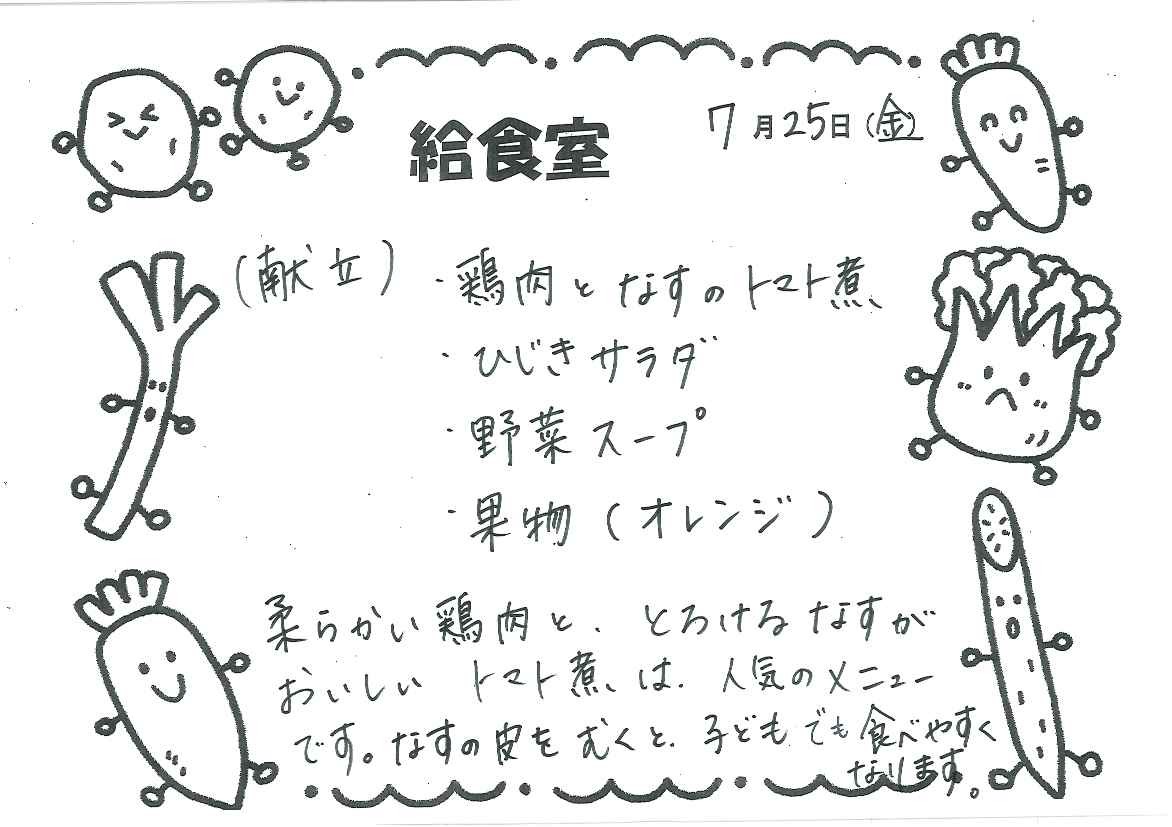 給食室
7月25日(金)
(献立)・鶏肉となすのトマト煮
・ひじきサラダ
・野菜スープ
・果物(オレンジ)
柔らかい鶏肉と、とろけるなすが
おいしい トマト煮は、人気のメニュー
です。なすの皮をむくと、子どもでも食べやすく
なります。